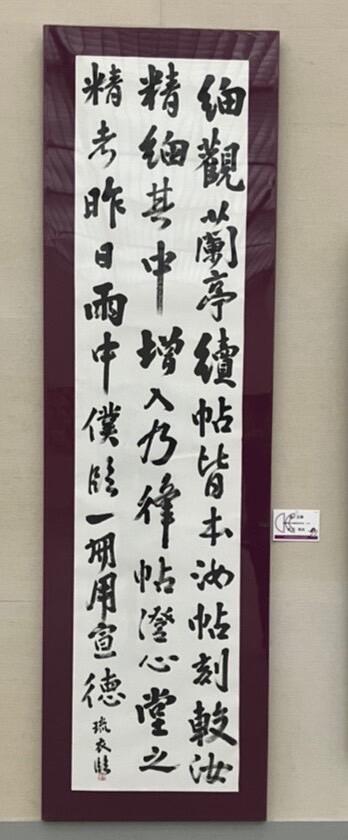 細觀蘭亭續帖皆本汝帖刻較汝
精細其中增入乃絳帖澄心堂之
精者昨日雨中僕臨一冊用宣德
琉衣臨